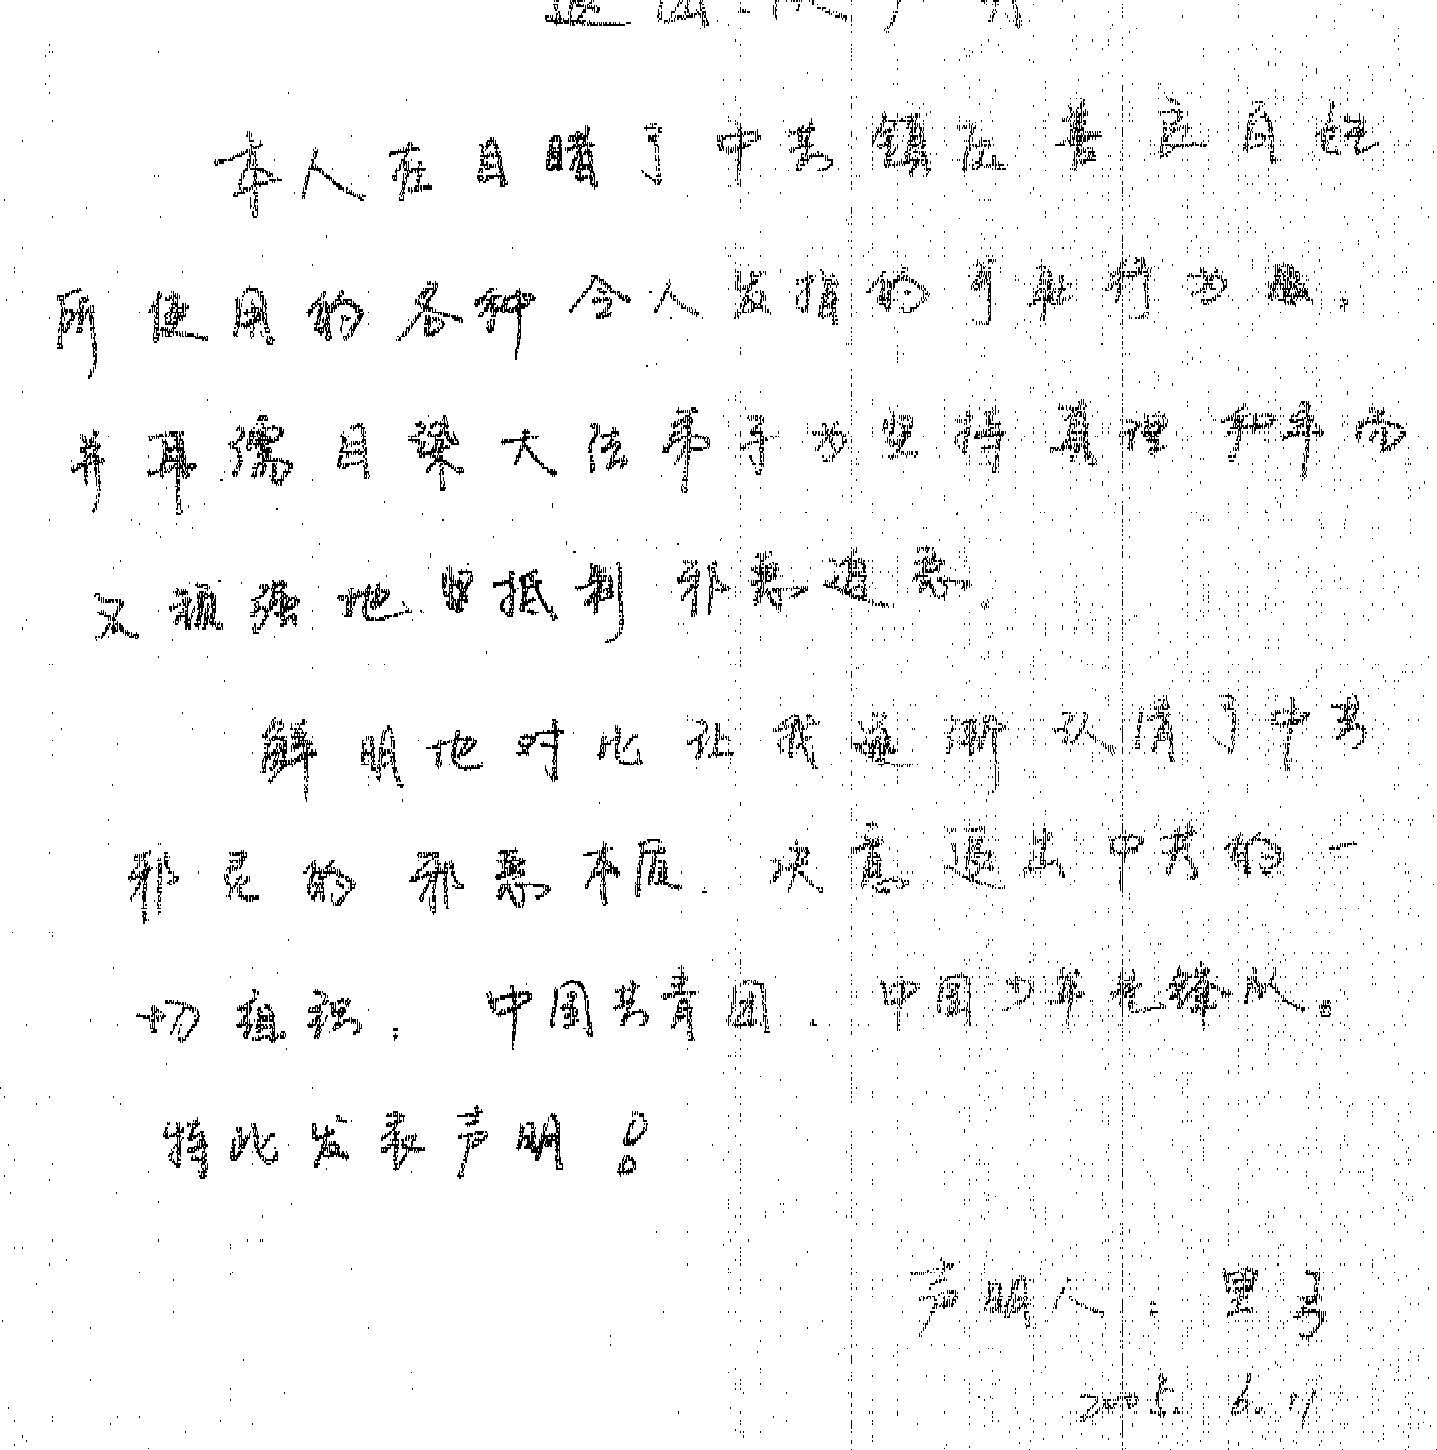 退团队声明
本人在目睹了中共镇压善良百姓
所使用的各种令人发指的可耻行为,
并耳濡目染大法弟子为坚持真理和平而
又顽强地抵制邪恶迫害.
鲜明地对比让我逐渐认清了中共
邪灵的邪恶本质.决意退出中共的一
切组织:中国共青团.中国少年先锋队。
特此发表声明!
声明人:里弓
2005.6.11